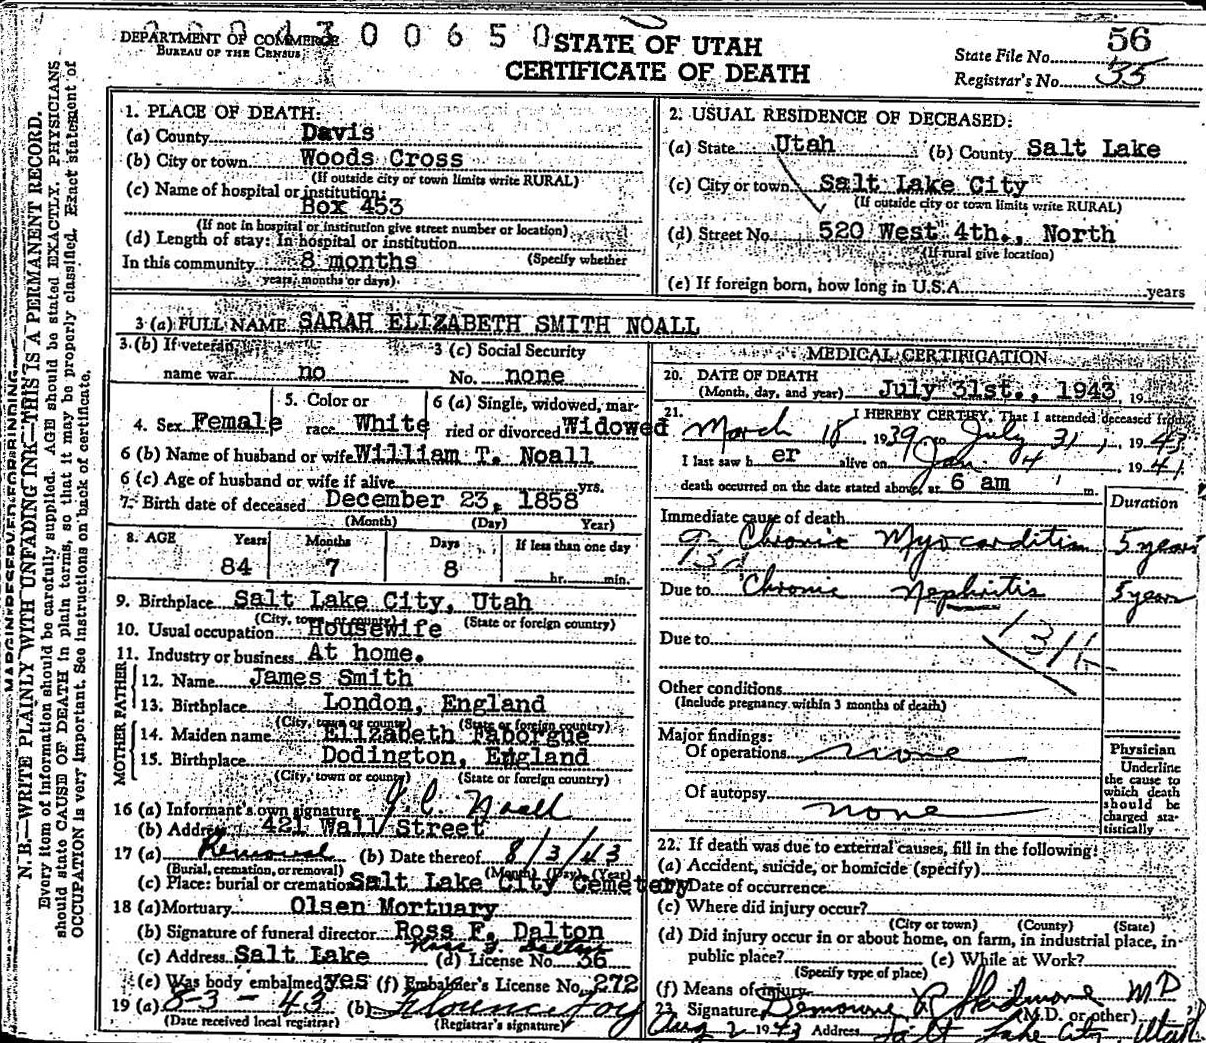 0 0 4 3 0 0 6 5 0
DEPARTMENT OF COMMERCE
BUREAU OF THE CENSUS
STATE OF UTAH
CERTIFICATE OF DEATH
State File No. 56
Registrar's No. 35
MARGIN RESERVED FOR BINDING
N. B.—WRITE PLAINLY WITH UNFADING INK—THIS IS A PERMANENT RECORD.
Every item of information should be carefully supplied. AGE should be stated EXACTLY. PHYSICIANS
should state CAUSE OF DEATH in plain terms, so that it may be properly classified. Exact statement of
OCCUPATION is very important. See instructions on back of certificate.
1. PLACE OF DEATH:
(a) County Davis
(b) City or town Woods Cross
(If outside city or town limits write RURAL)
(c) Name of hospital or institution:
Box 453
(If not in hospital or institution give street number or location)
(d) Length of stay: In hospital or institution
In this community 8 months (Specify whether
years, months or days)
2. USUAL RESIDENCE OF DECEASED:
(a) State Utah (b) County Salt Lake
(c) City or town Salt Lake City
(If outside city or town limits write RURAL)
(d) Street No. 520 West 4th., North
(If rural give location)
(e) If foreign born, how long in U.S.A. years
3 (a) FULL NAME SARAH ELIZABETH SMITH NOALL
3.(b) If veteran,
name war no
3 (c) Social Security
No. none
4. Sex Female
5. Color or
race White
6 (a) Single, widowed, mar-
ried or divorced Widowed
6 (b) Name of husband or wife William T. Noall
6 (c) Age of husband or wife if alive yrs.
7. Birth date of deceased December 23, 1858
(Month) (Day) Year)
8. AGE Years Months Days If less than one day
84 7 8 hr. min.
9. Birthplace Salt Lake City, Utah
(City, town, or county) (State or foreign country)
10. Usual occupation Housewife
11. Industry or business At home.
FATHER
12. Name James Smith
13. Birthplace London, England
(City, town or county) (State or foreign country)
MOTHER
14. Maiden name Elizabeth Faborgue
15. Birthplace Dodington, England
(City, town or county) (State or foreign country)
16 (a) Informant's own signature J. C. Noall
(b) Address 421 Wall Street
17 (a) Removal (b) Date thereof 8/3/43
(Burial, cremation, or removal) (Month) (Day) (Year)
(c) Place: burial or cremation Salt Lake City Cemetery
18 (a) Mortuary Olsen Mortuary
(b) Signature of funeral director Ross F. Dalton
Ross F. Dalton
(c) Address Salt Lake (d) License No. 36
(e) Was body embalmed yes (f) Embalmer's License No. 272
19 (a) 8-3-43 (b) Florence Foy
(Date received local registrar) (Registrar's signature)
MEDICAL CERTIFICATION
20. DATE OF DEATH
(Month, day, and year) July 31st., 1943, 19
21. I HEREBY CERTIFY, That I attended deceased from
March 18, 1939, to July 31, 1943
I last saw her alive on Jan. 4, 1941
death occurred on the date stated above, at 6 am m.
Duration
Immediate cause of death
Chronic Myocarditis 5 years
Due to Chronic Nephritis 5 years
Due to
Other conditions
(Include pregnancy within 3 months of death)
Major findings:
Of operations none
Of autopsy
none
Physician
Underline
the cause to
which death
should be
charged sta-
tistically
22. If death was due to external causes, fill in the following:
(a) Accident, suicide, or homicide (specify)
Date of occurrence
(c) Where did injury occur?
(City or town) (County) (State)
(d) Did injury occur in or about home, on farm, in industrial place, in
public place? (e) While at Work?
(Specify type of place)
(f) Means of injury
23. Signature R Skidmore MD
(M.D. or other)
Aug 2 1943 Address Salt Lake City, Utah